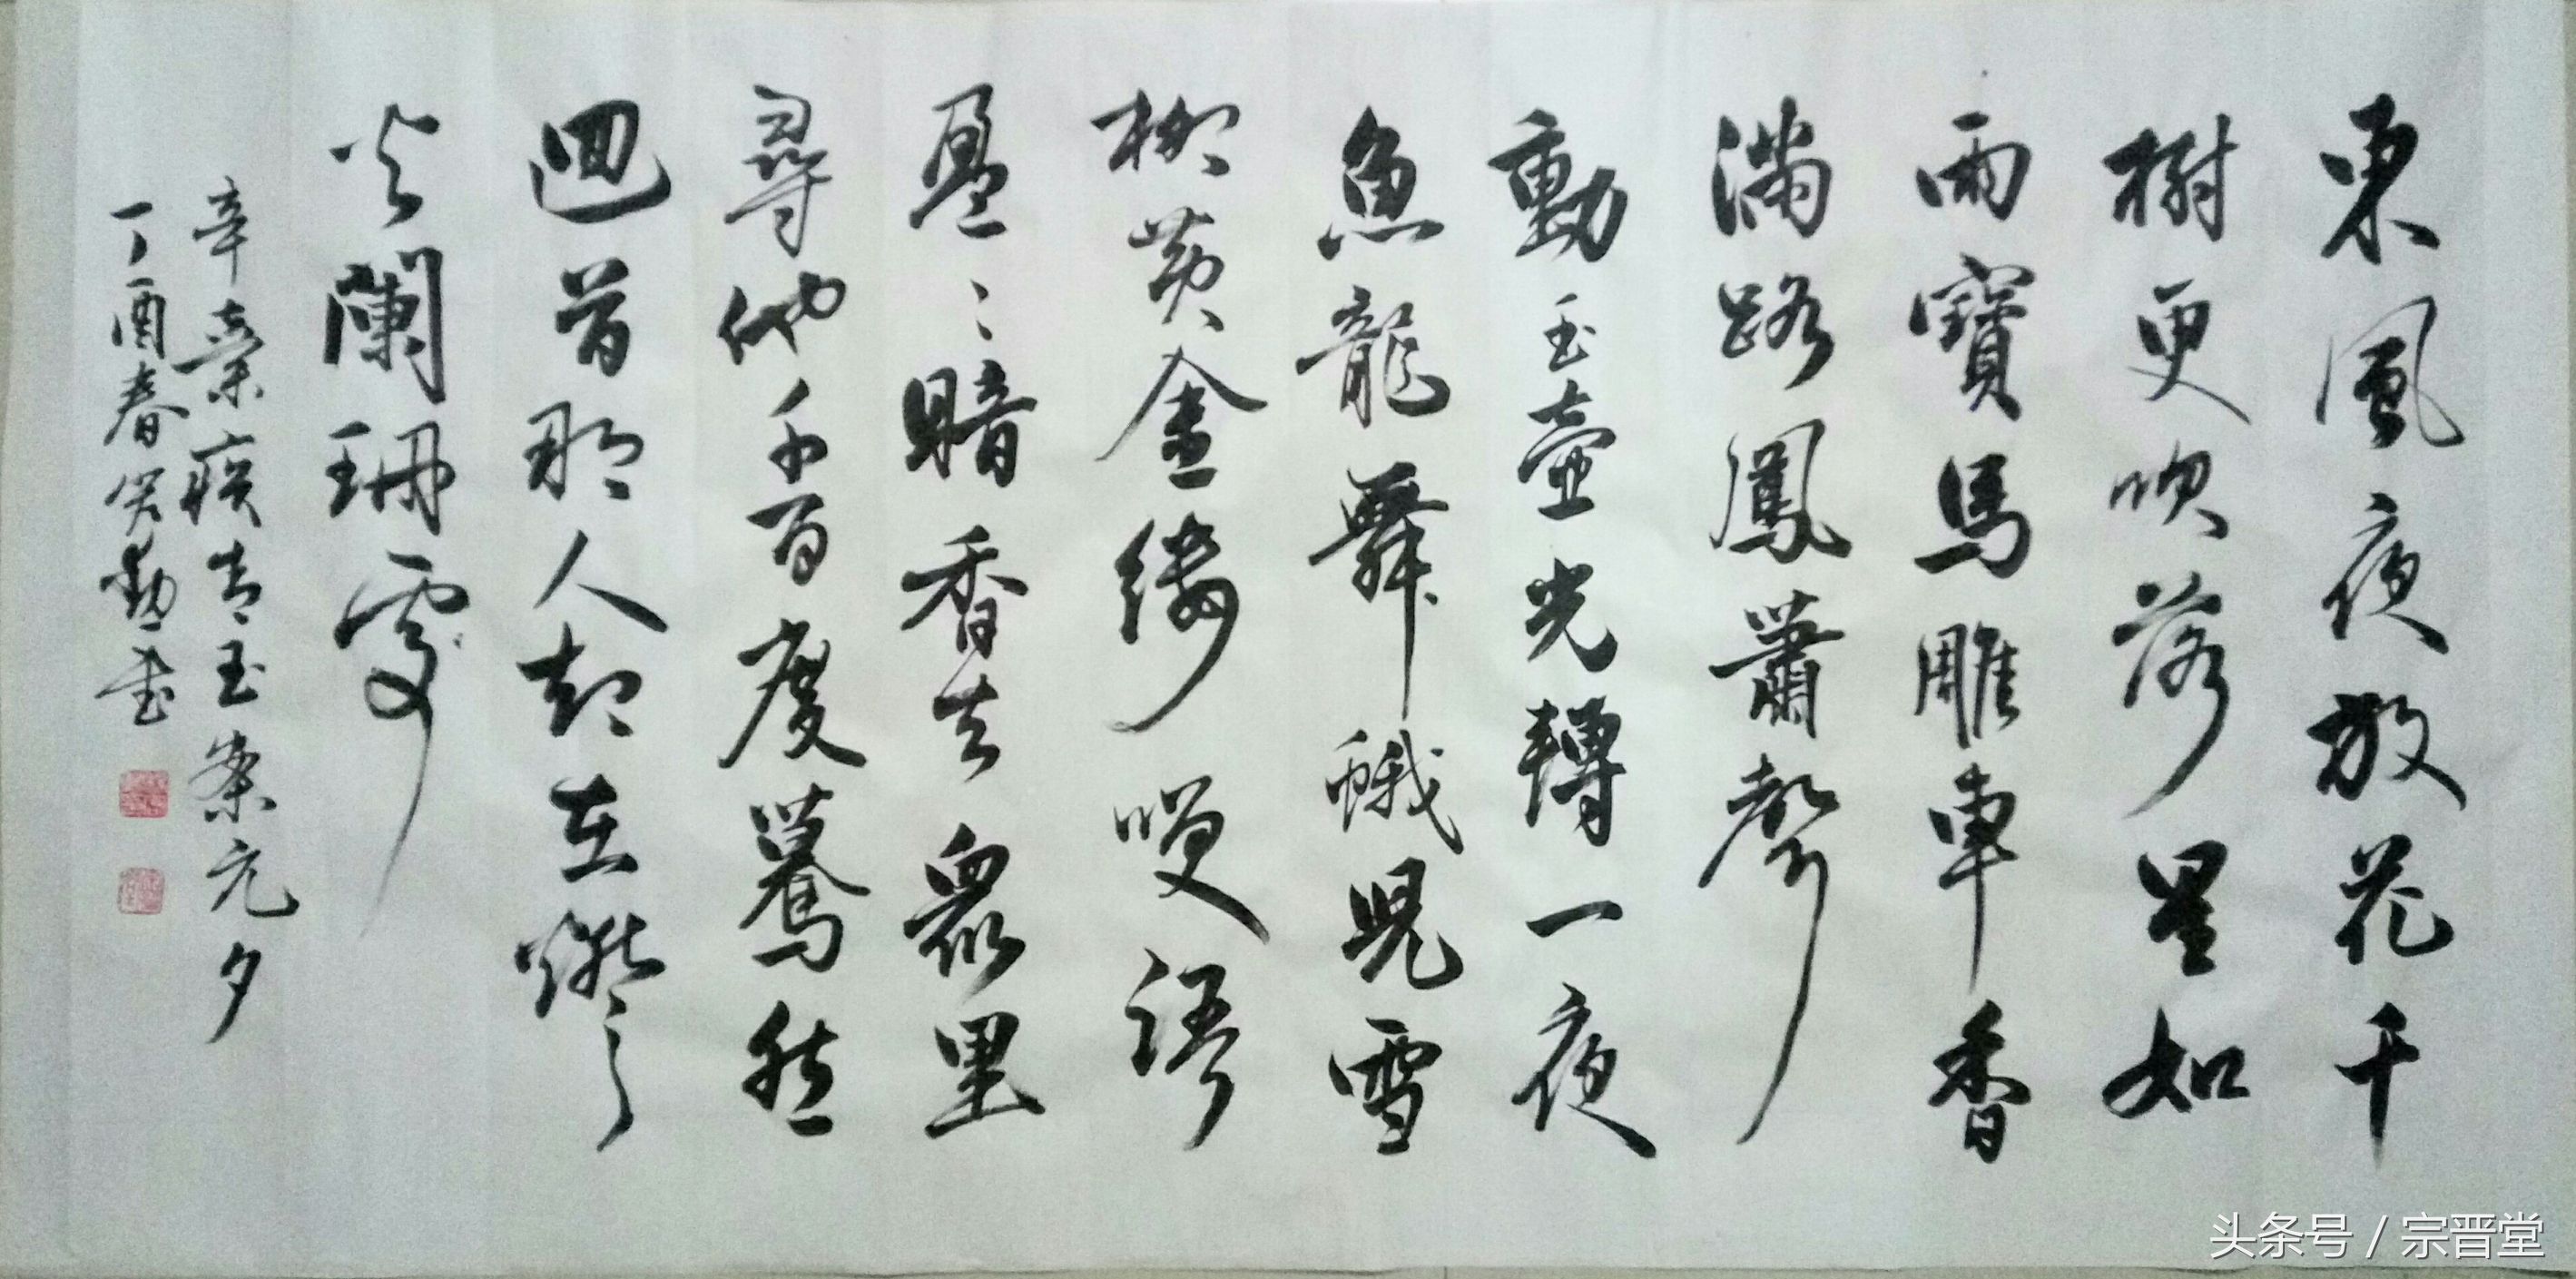 東風夜放花千
樹更吹落星如
雨寶馬雕車香
滿路鳳蕭聲
動玉壺光轉一夜
魚龍舞蛾兒雪
柳黃金縷笑語
盈〻暗香去眾里
尋他千百度驀然
迴首那人却在燈
火闌珊處
辛棄疾青玉案元夕
丁酉春勤書
头条号 / 宗晋堂